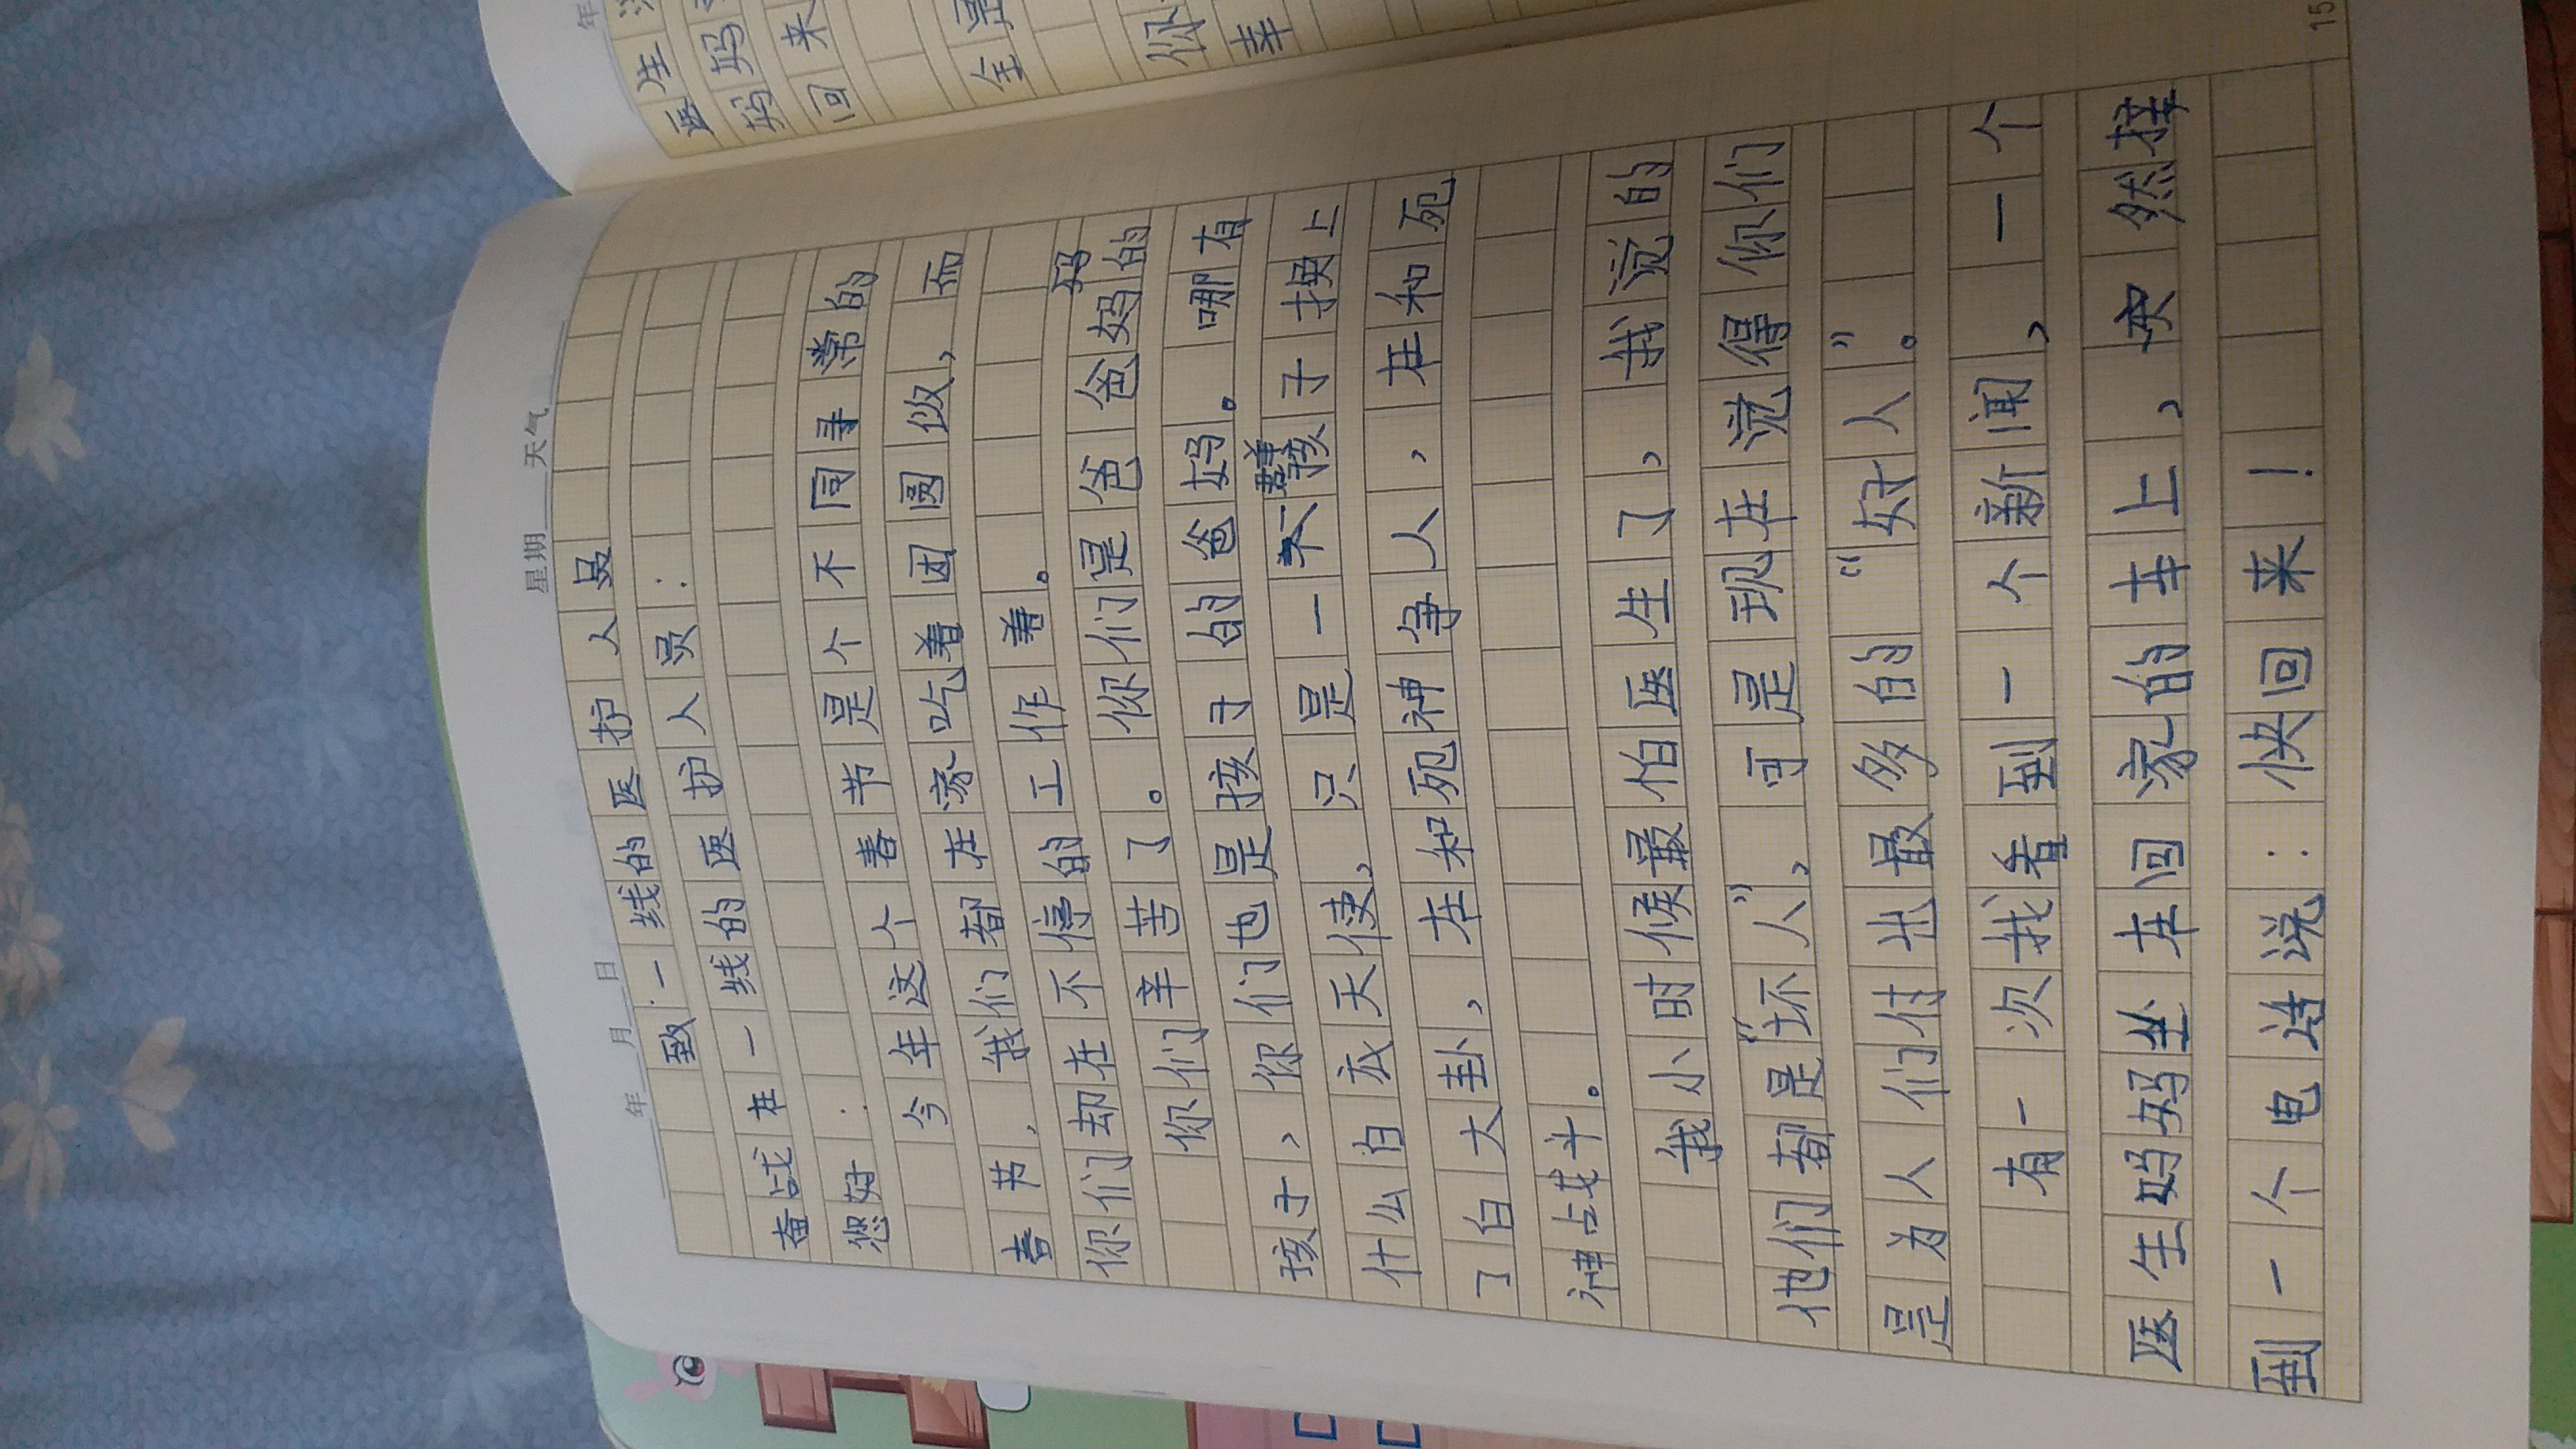 年 月 日 星期 天气
致一线的医护人员
奋战在一线的医护人员:
您好:
今年这个春节是个不同寻常的
春节,我们都在家吃着团圆饭,而
你们却在不停的工作着。
你们辛苦了。你们是爸爸妈妈的
孩子,你们也是孩子的爸妈。哪有
什么白衣天使,只是一群孩子换上
了白大卦,在和死神争人,在和死
神战斗。
我小时候最怕医生了,我觉的
他们都是“坏人”,可是现在觉得你们
是为人们付出最多的“好人”。
有一次我看到一个新闻,一个
医生妈妈坐在回家的车上,突然接
到一个电话说:快回来!
15
年
医生
妈妈
回来
全
你
幸